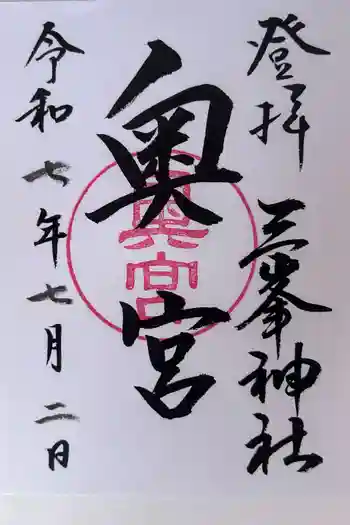 登拝 三峯神社
奥宮
奥宮
令和七年七月二日